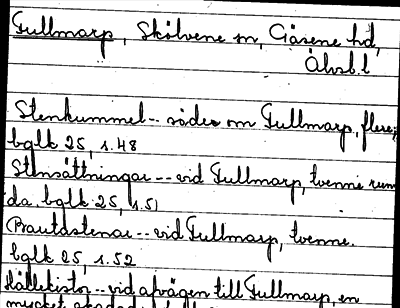 Fullmarp, Skölvene sn, Gäsene hd,
Älvsb.l
Stenkummel-- söder om Fullmarp, flere,
bglk 25, s.48
Stensättningar --- vid Fullmarp, tvenne run-
da, bglk 25, s.51
Bautastenar -- vid Fullmarp, tvenne.
bglk 25, s.52
Hällekistor -- vid avägen till Fullmarp, en
mycket